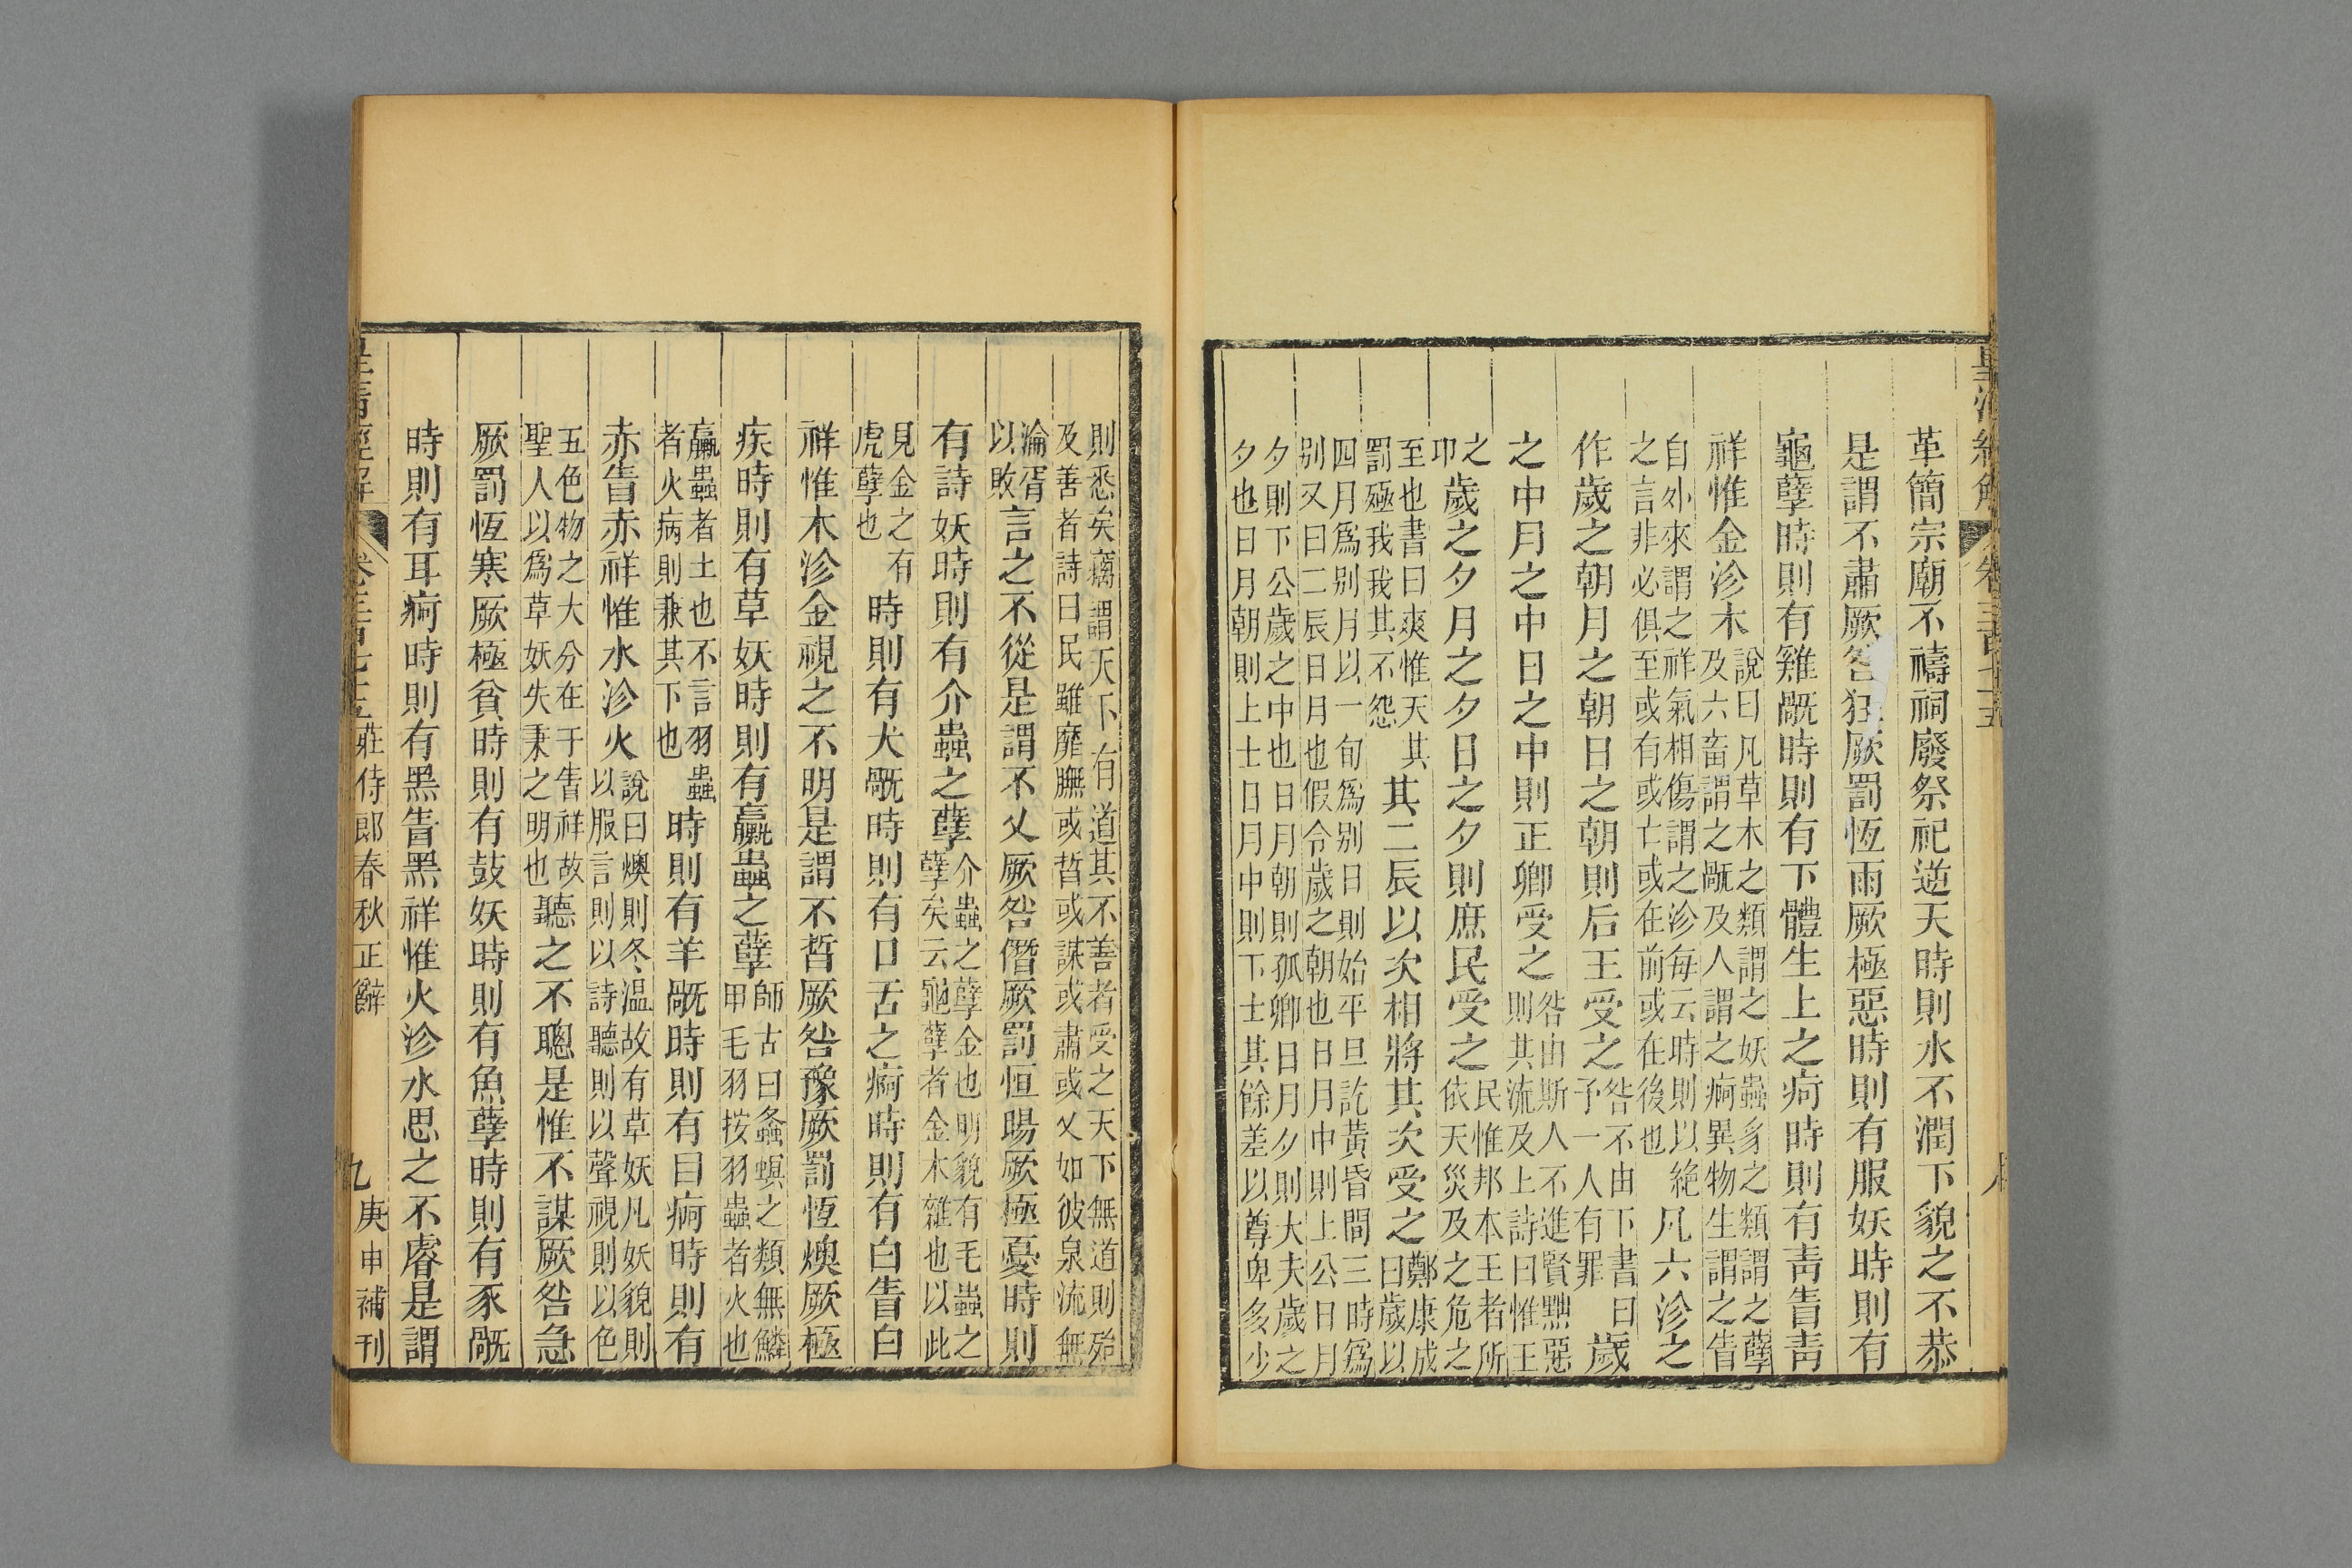 革簡宗廟不禱祠廢祭祀逆天時則水不潤下貌之不恭
是謂不肅厥咎狂厥罰恆雨厥極惡時則有服妖時則有
龜孽時則有雞旤時則有下體生上之痾時則有靑眚靑
祥惟金沴木說曰凡草木之類謂之妖蟲豸之類謂之孽
及六畜謂之旤及人謂之痾異物生謂之眚
自外來謂之祥氣相傷謂之沴每云時則以絶
之言非必俱至或有或亡或在前或在後也
凡六沴之
作歲之朝月之朝日之朝則后王受之咎不由下書曰
予一人有罪
歲
之中月之中日之中則正卿受之咎由斯人不進賢黜惡
則其流及上詩曰惟王
之
卭
歲之夕月之夕日之夕則庶民受之民惟邦本王者所
依天災及之危之
至也書曰爽惟天其
罰殛我我其不怨
其二辰以次相將其次受之鄭康成
曰歲以
四月爲别月以一旬爲别日則始平旦訖黃昏間三時爲
别又曰二辰日月也假令歲之朝也日月中則上公日月
夕則下公歲之中也日月朝則孤卿日月夕則大夫歲之
夕也日月朝則上士日月中則下士其餘差以尊卑多少
皇清經解 卷三百七十五
則悉矣癘謂天下有道其不善者受之天下無道則殆
及善者詩曰民雖靡膴或哲或謀或肅或乂如彼泉流無
淪胥
以敗
言之不從是謂不乂厥咎僭厥罰恒暘厥極憂時則
有詩妖時則有介蟲之孽介蟲之孽金也明貌有毛蟲之
孽矣云龜孽者金木雜也以此
見金之有
虎孽也
時則有犬旤時則有口舌之痾時則有白眚白
祥惟木沴金視之不明是謂不晢厥咎豫厥罰恆燠厥極
疾時則有草妖時則有蠃蟲之孽師古曰螽螟之類無鱗
甲毛羽按羽蟲者火也
蠃蟲者土也不言羽蟲
者火病則兼其下也
時則有羊旤時則有目痾時則有
赤眚赤祥惟水沴火說曰燠則冬温故有草妖凡妖貌則
以服言則以詩聽則以聲視則以色
五色物之大分在于眚祥故
聖人以爲草妖失秉之明也
聽之不聰是惟不謀厥咎急
厥罰恆寒厥極貧時則有鼓妖時則有魚孽時則有豕旤
時則有耳痾時則有黑眚黑祥惟火沴水思之不睿是謂
皇清經解 卷三百七十五 莊侍郎春秋正辭 九 庚申補刊